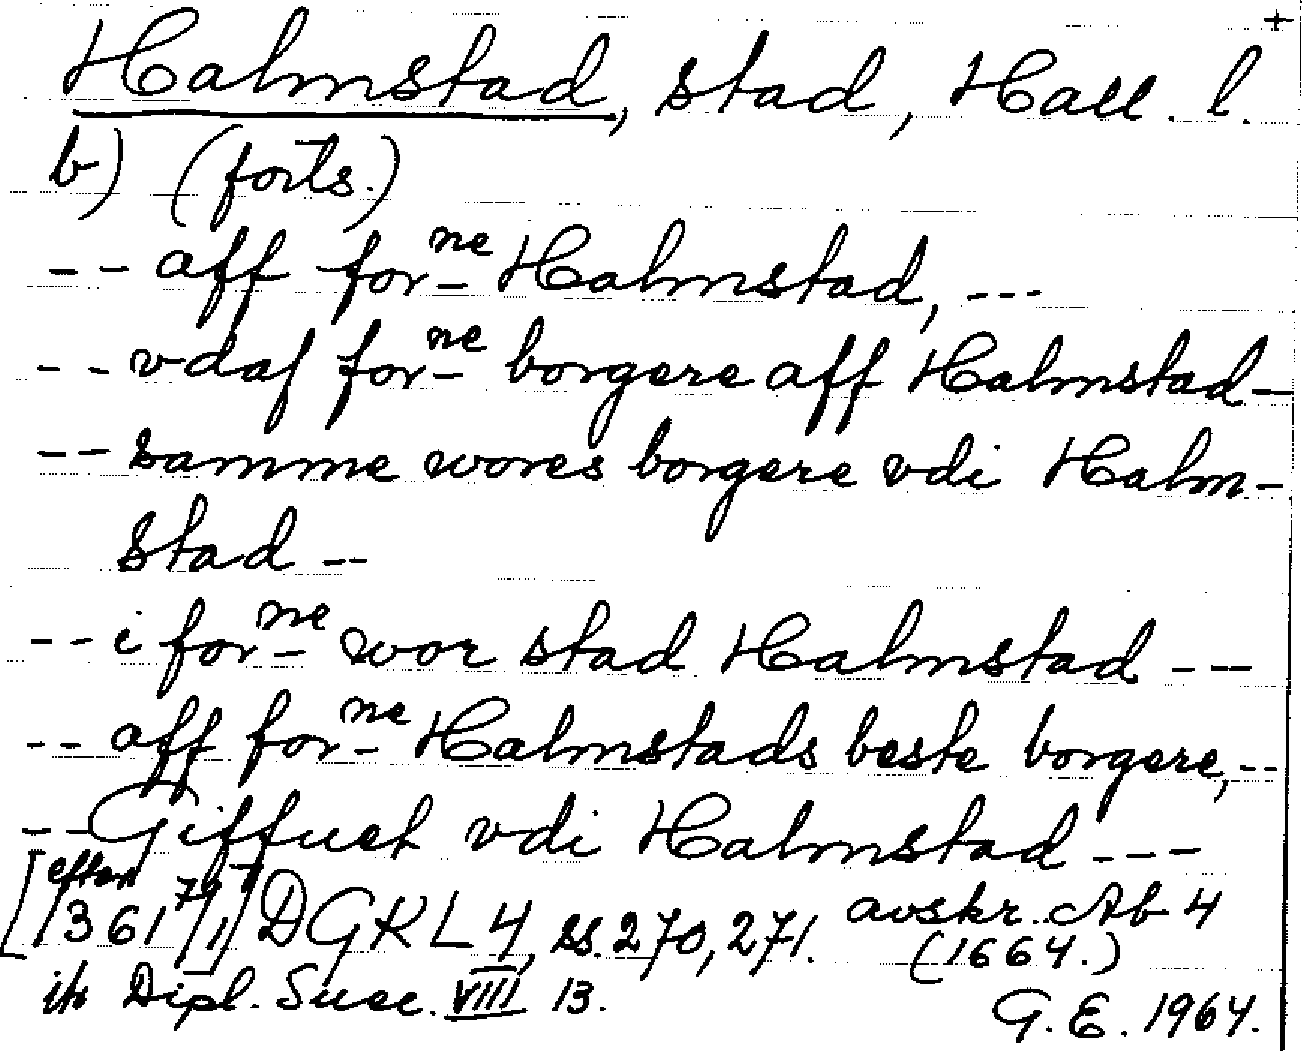 +
Halmstad, stad, Hall. l.
b) (forts.)
-- aff forne Halmstad, ---
-- vdaf forne borgere aff Halmstad -
-- samme wores borgere vdi Halm-
stad --
-- i forne wor stad Halmstad ---
-- aff forne Halmstads beste borgere, --
-- Giffuet vdi Halmstad ---
[efter 1361 7/1] DGKL 4, ss. 270, 271. avskr. Ab 4
(1664.)
Dipl. Suec. VIII 13.
G. E. 1964.